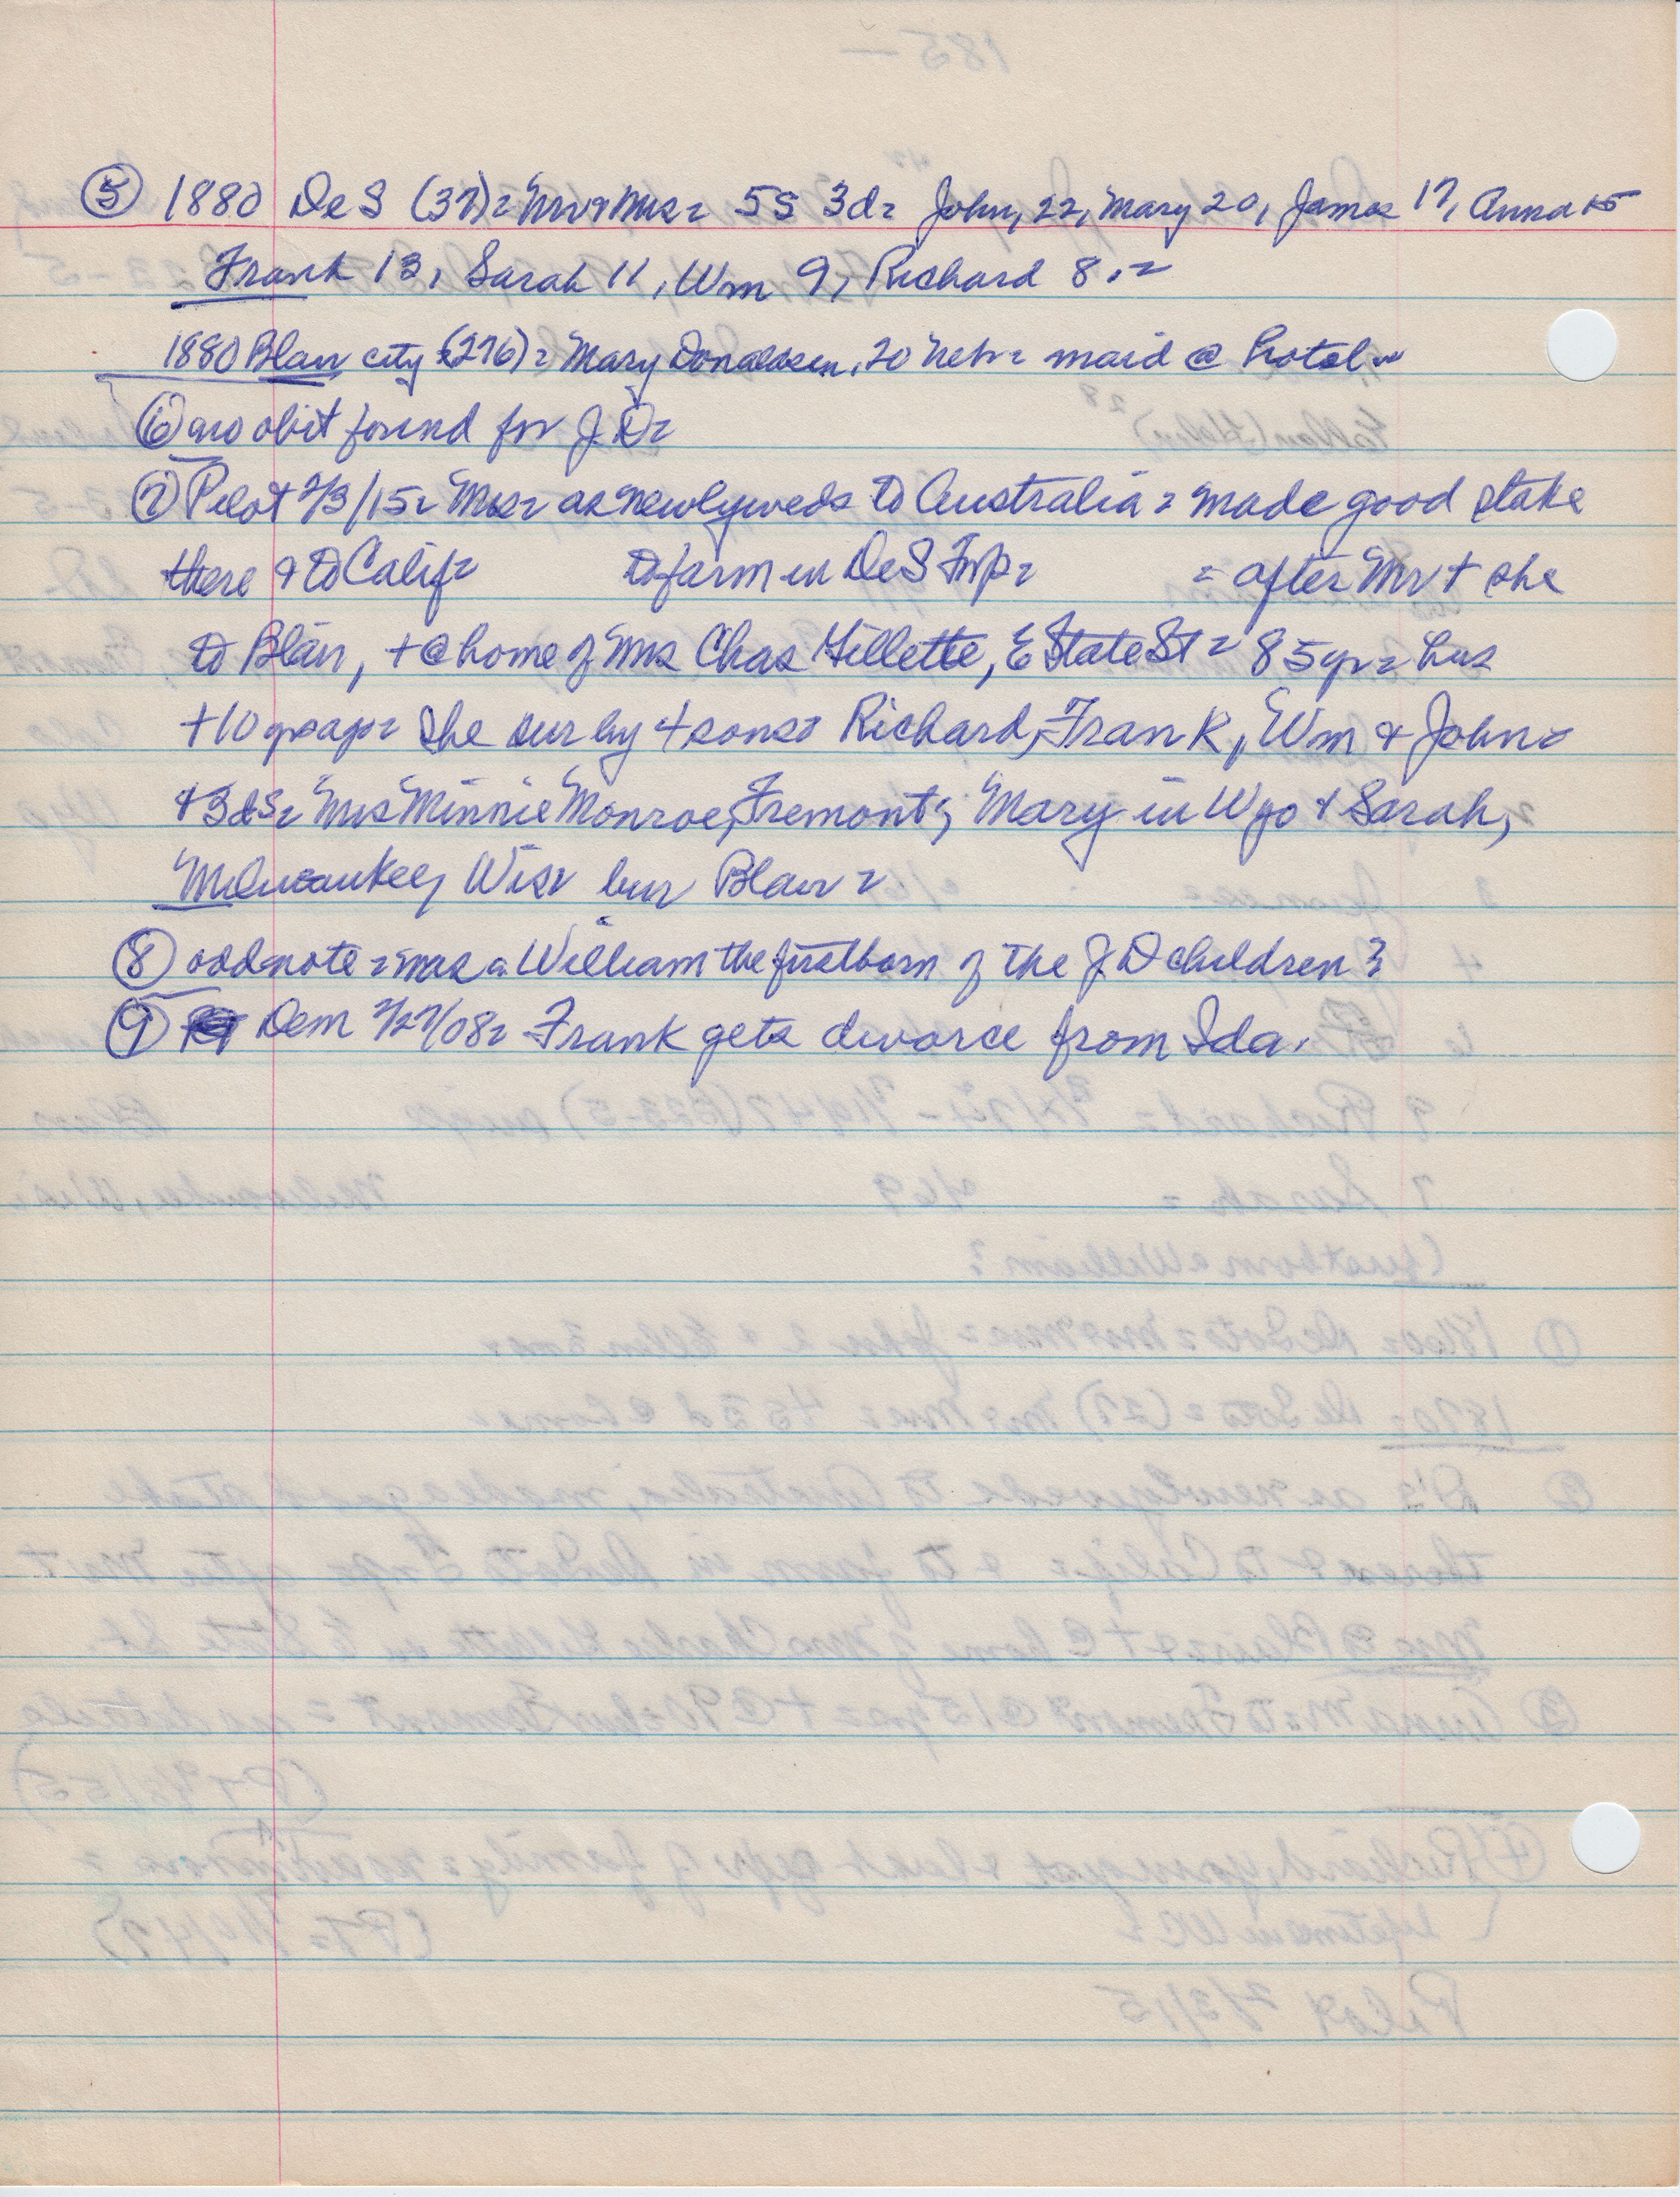 ⑤ 1880 DeS (37)= Mr & Mrs= 5S 3d= John, 22, Mary 20, James 17, Anna 15
Frank 13, Sarah 11, Wm 9, Richard 8.=
1880 Blair city (276)= Mary Donaldson, 20 Neb= maid @ hotel
⑥ no obit found for J.D=
⑦ Pilot 2/3/15= Mrs= as newlyweds to Australia= made good stake
there & to Calif= to farm in DeS Twp= = after Mr + she
to Blair, + @ home of Mrs Chas Gillette, E State St= 85yr= hus
+ 10 yrs ago= She sur by 4 sons= Richard, Frank, Wm & John=
& 3ds= Mrs Minnie Monroe, Fremont; Mary in Wyo & Sarah,
Milwaukee, Wis= bur Blair=
⑧ odd note = was a William the firstborn of the J.D children?
⑨ Dem 2/27/08= Frank gets divorce from Ida.